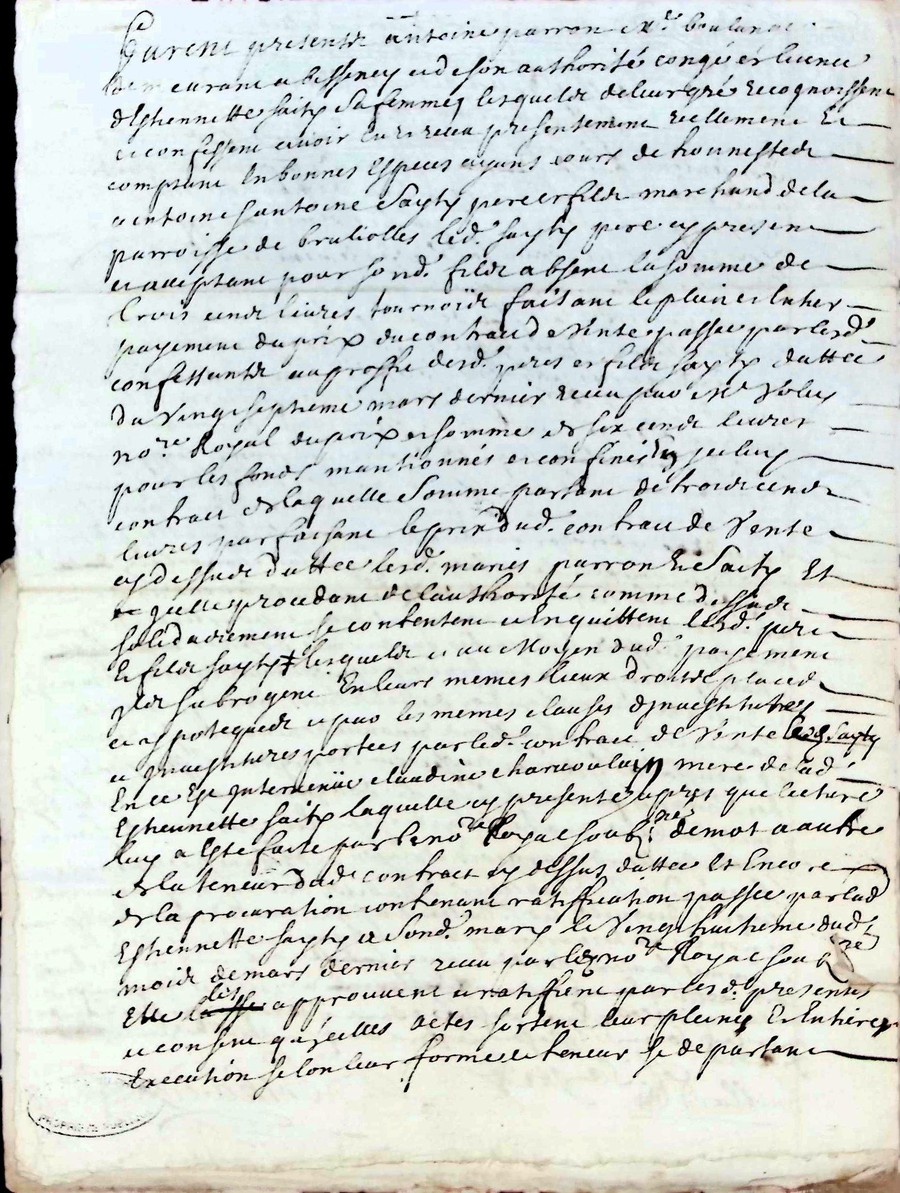 Furent presents Antoine parron Me boulanger
demeurant a bessenay et de son authorité congé et licence
d'Estiennette saity sa femme lesquels de leur gré recognoissent
et confessent avoir eu et receu presentement reellement et
comptant en bonnes Especes ayant cours de honnestes
antoine & antoine Sayty pere et fils marchand de la
parroisse de brullioles led. sayty pere cy present
et acceptant pour sond. fils absent la somme de
trois cents livres tournois faisant le plein et entier
payement du prix du contract de vente passé par lesd.
confessants au proffit desd. peres et fils sayty datté
du vingt septieme mars dernier receu par Me
nore Royal du prix et somme de six cents livres
pour les fonds mantionnés et confinés En jceluy
contract de laquelle somme partant de trois cents
livres parfaisant le prix dud. contract de vente
cy dessus datté lesd. mariés parron et Saity Et
jcelle procedant de l'authorité comme dessus
solidairement se contentent et en quittent lesd. pere
et fils sayty lesquels et au moyen dud. payement
jls subrogent en leurs memes lieux droits places
et hypoteques et par les memes clauses
et jnvestitures portées par led. contract de vente lesd sayty
En ce Est jntervenüe claudine mere de lad.
Estiennette saity laquelle cy presente apres que lecture
luy a Esté faite par le nore Royal soubne de mot a autre
de la teneur dud. contract cy dessus datté Et Encore
de la procuration contenant ratiffication passée par lad
Estiennette sayty et sond. mary le vingt huitieme dud.
mois de mars dernier receu par led nore Royal soubne
Elle dit approuvent et ratiffient par les d. presentes
et consent qu'jcelles actes sortent leur pleine Et Entiere
Execution selon leur forme et teneur se departant